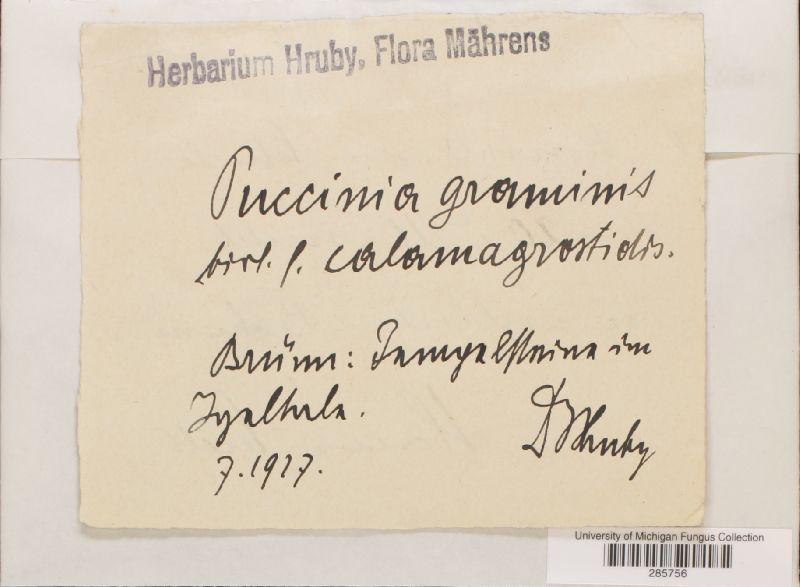 Herbarium Hruby, Flora Mährens
Puccinia graminis
biol. f. calamagrostidis.
Brünn: Tempelsteine im
Igeltale.
7.1927.
D Hruby
University of Michigan Fungus Collection
285756